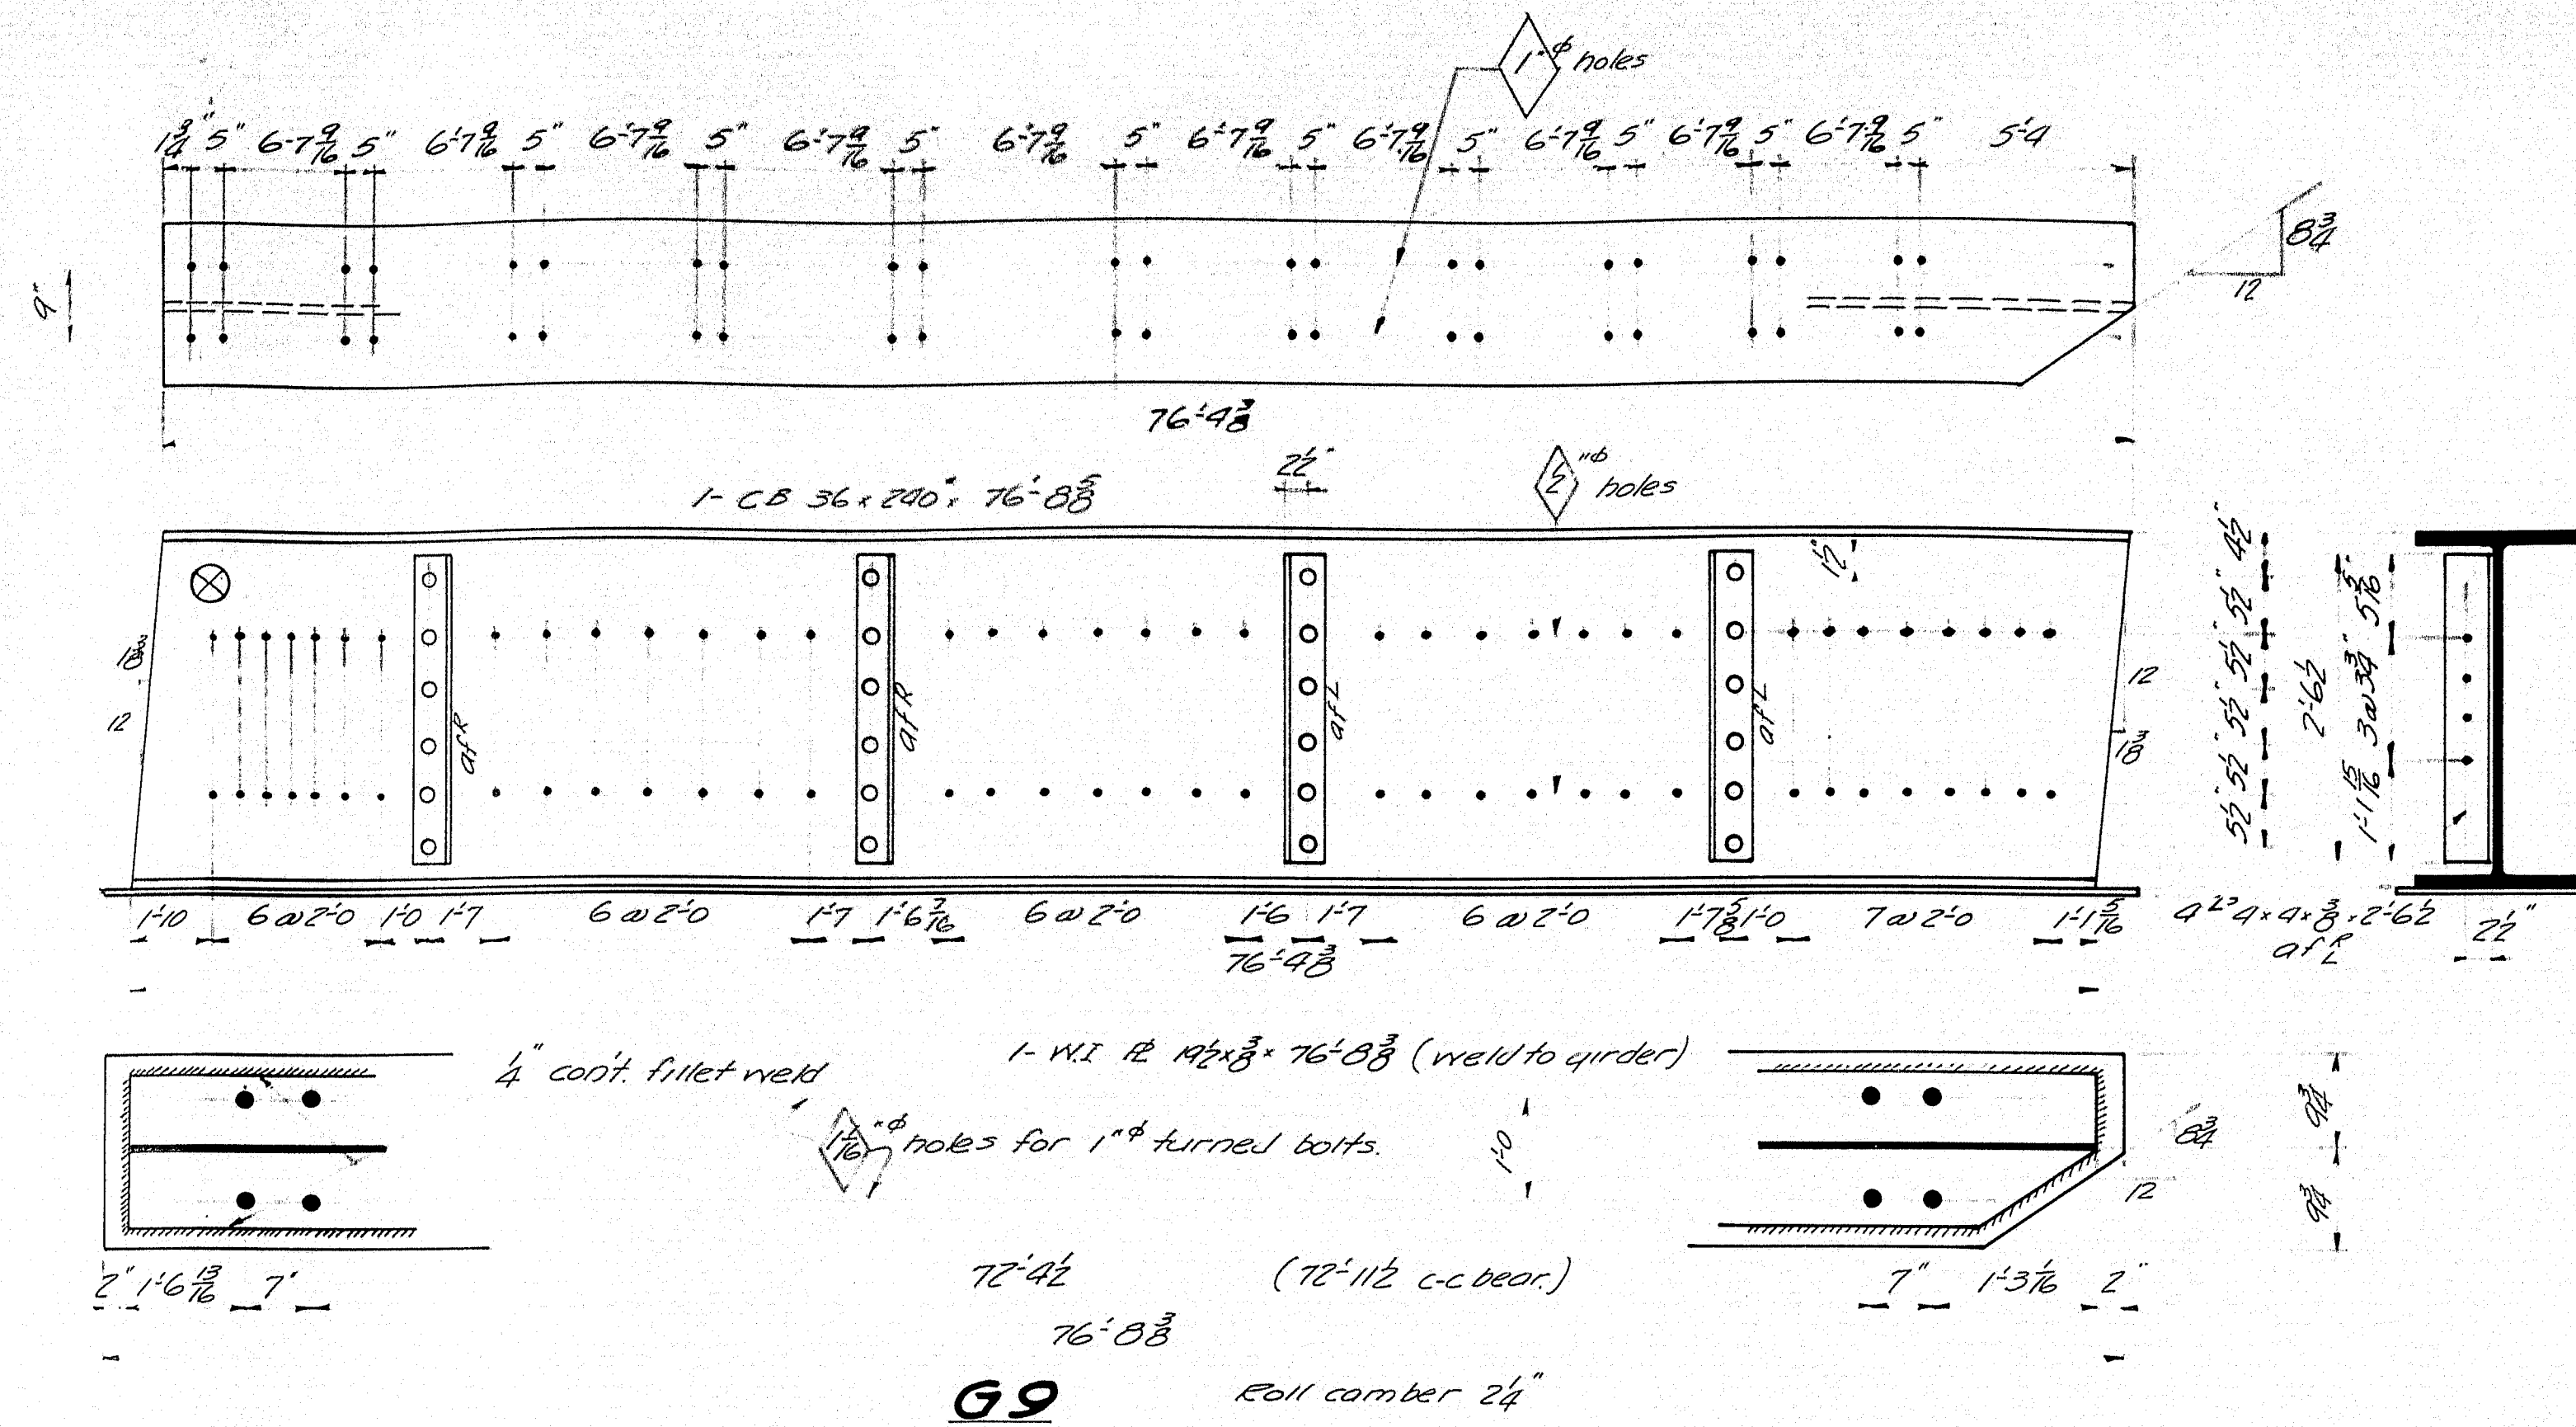 1"φ holes
1 3/4" 5" 6-7 9/16 5" 6'-7 9/16 5" 6'-7 9/16 5" 6'-7 9/16 5" 6'-7 9/16 5" 6'-7 9/16 5" 6'-7 9/16 5" 6'-7 9/16 5" 6'-7 9/16 5" 6'-7 9/16 5" 5'-4
8 3/4
12
9"
76'-4 3/8
2 1/2"
1- CB 36 x 240# x 76'-8 5/8
1/2"φ holes
1 1/2"
4 1/2"
5 1/2" 5 1/2" 5 1/2" 5 1/2" 5 1/2"
2'-6 1/2
5 5/16"
3 @ 3 3/4"
1'-1 15/16
1 3/8
12
af R
af R
af L
af L
12
1 3/8
1'-10 6 @ 2'-0 1'-0 1'-7 6 @ 2'-0 1'-7 1'-6 3/16 6 @ 2'-0 1'-6 1'-7 6 @ 2'-0 1'-7 5/8 1'-0 7 @ 2'-0 1'-1 5/16
4 Ls 4 x 4 x 3/8 x 2'-6 1/2
af R/L
2 1/2"
76'-4 3/8
1/4" con't. fillet weld
1- W.I PL 19 1/2 x 3/8 x 76'-8 3/8 (weld to girder)
1 1/16"φ holes for 1"φ turned bolts.
1'-0
8 3/4
12
9 3/4
9 3/4
2" 1'-6 13/16 7"
72'-4 1/2 (72'-11 1/2 c-c bear.)
7" 1'-3 1/16 2"
76'-8 3/8
G9
Roll camber 2 1/4"